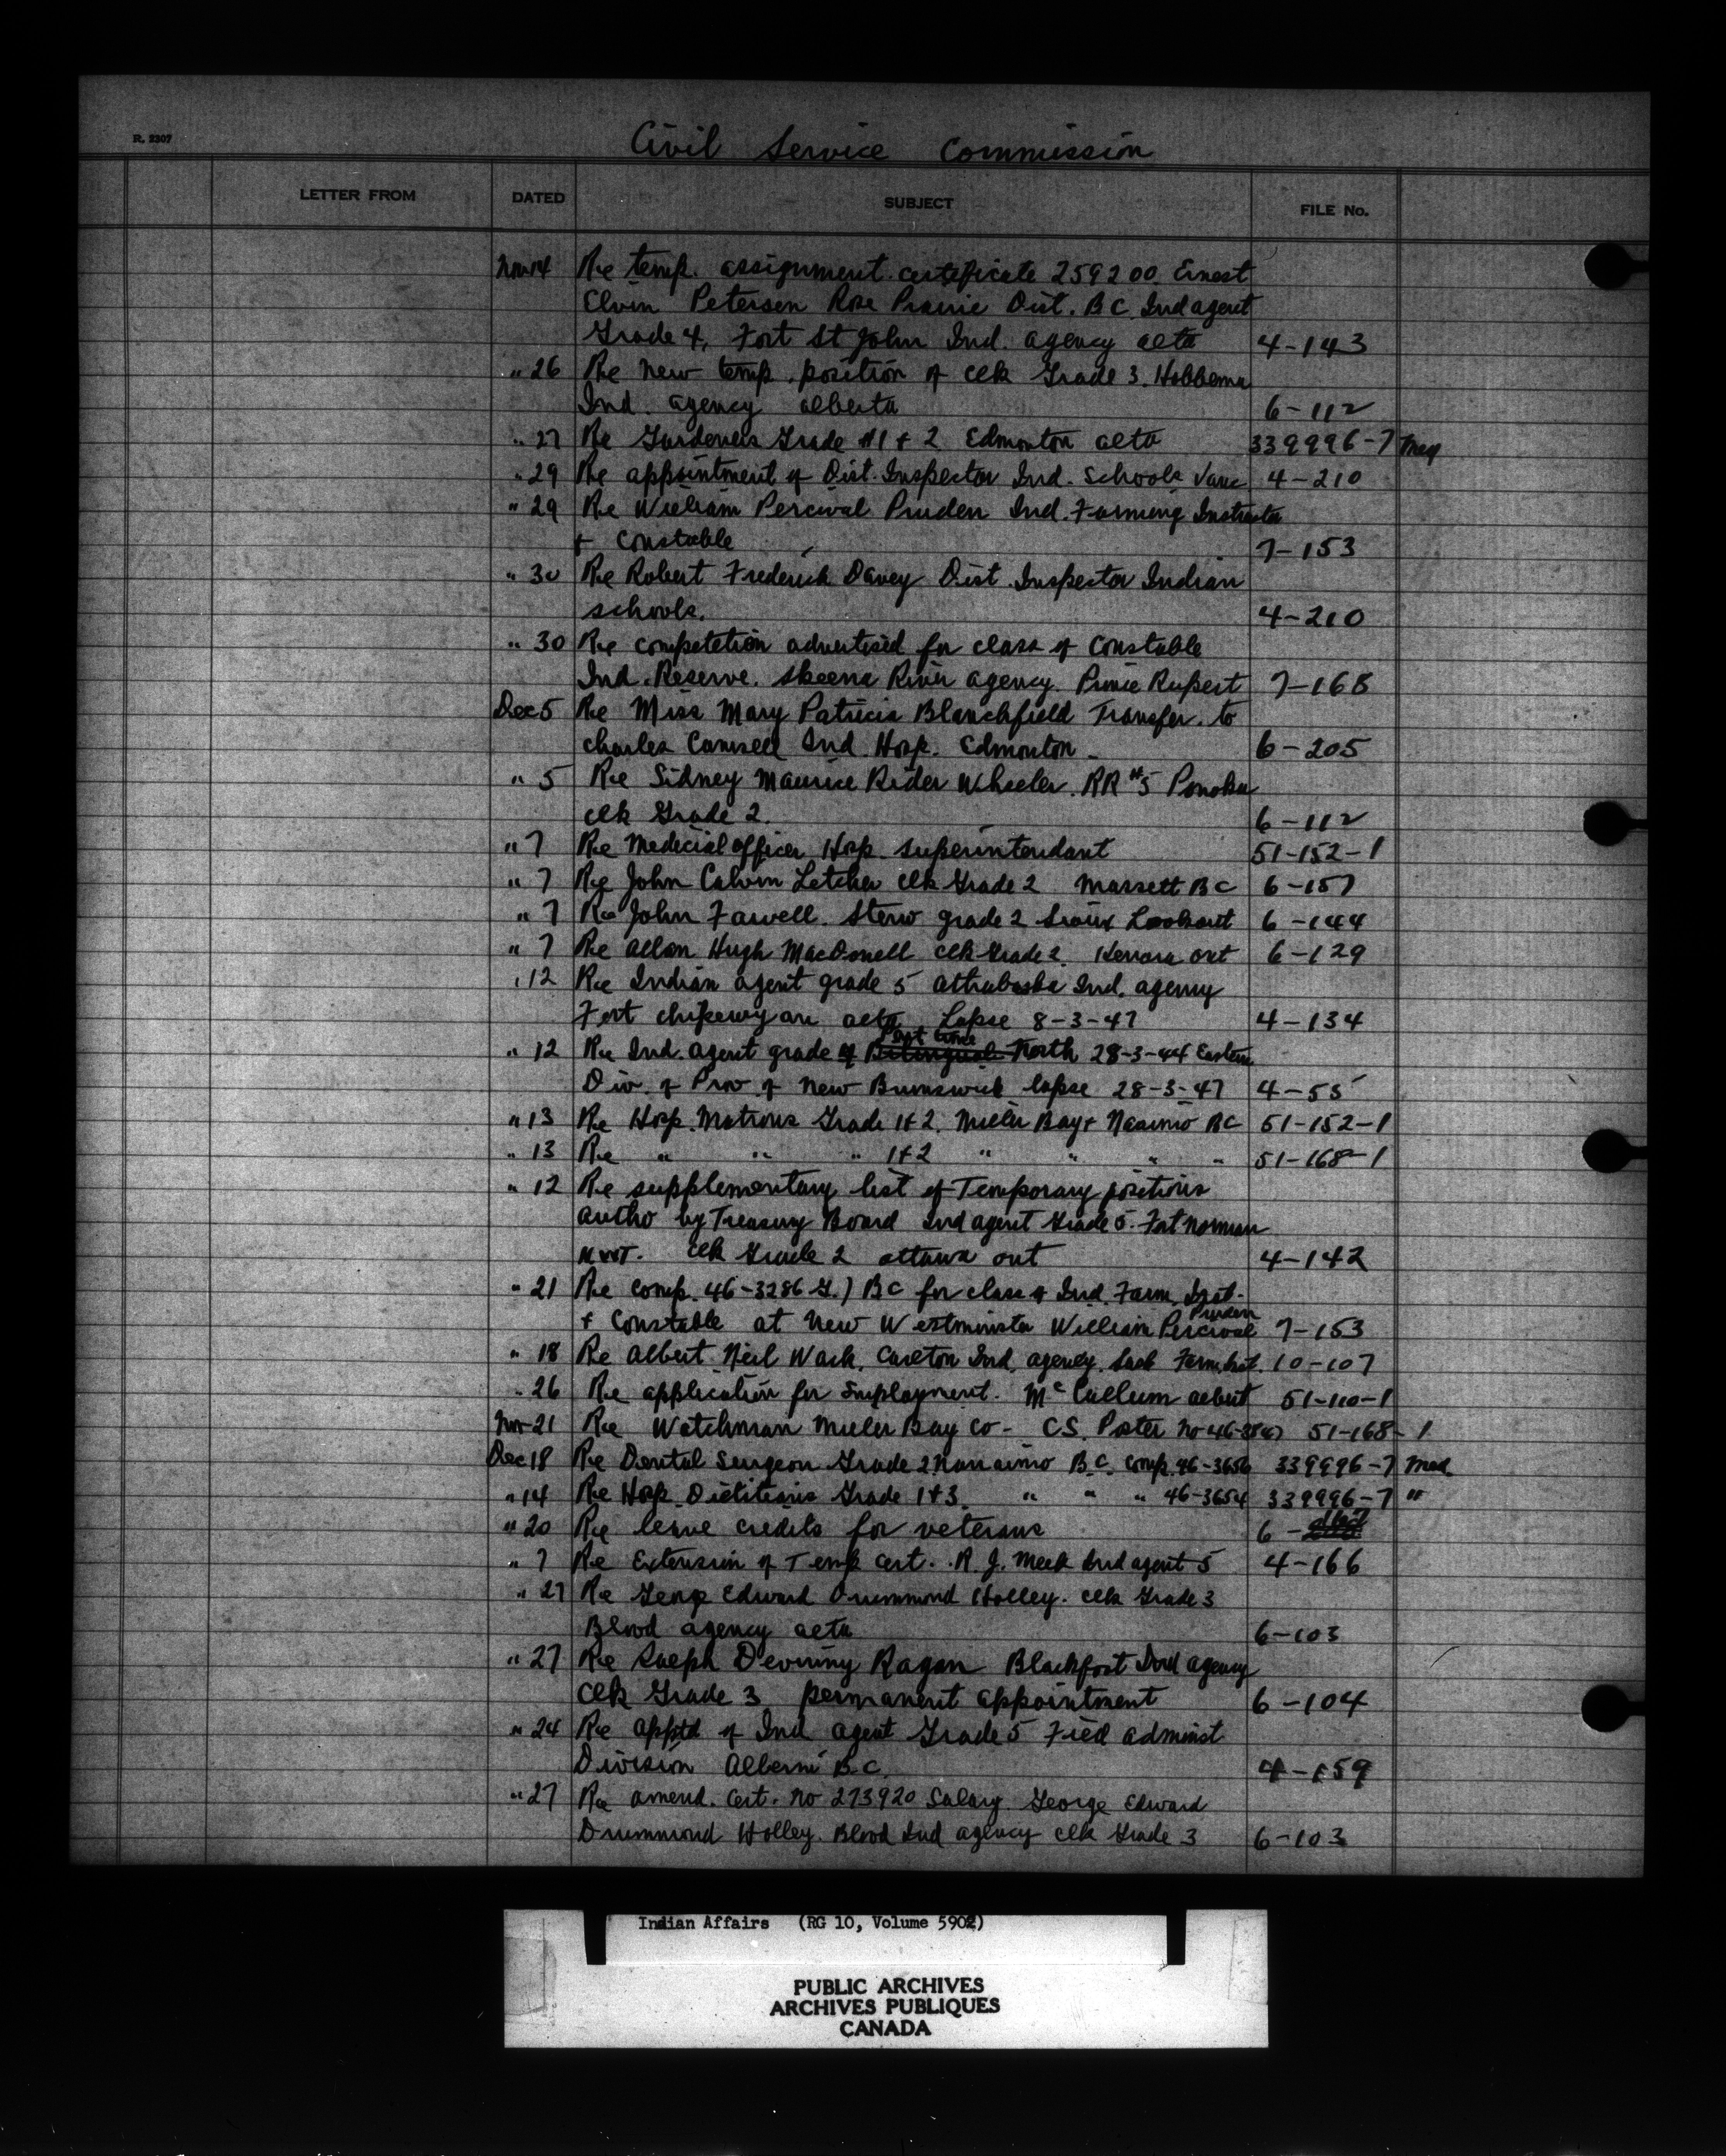 R. 2307
Civil Service Commission
LETTER FROM DATED SUBJECT FILE No.
Nov 14 Re temp. assignment certificate 259200 Ernest
Elvin Petersen Rose Prairie Dist. B C. Ind agent
Grade 4, Fort St John Ind. agency alta 4-143
" 26 Re new temp. position of clk Grade 3. Hobbema
Ind. agency alberta 6-112
" 27 Re Gardeners Grade #1 + 2 Edmonton alta 339996-7 Med
" 29 Re appointment of Dist. Inspector Ind. Schools Vanc 4-210
" 29 Re William Percival Pruden Ind. Farming Instructor
+ Constable 7-153
" 30 Re Robert Frederick Davey Dist. Inspector Indian
schools. 4-210
" 30 Re competetion advertised for class of Constable
Ind. Reserve. Skeena River agency. Prince Rupert 7-168
Dec 5 Re Miss Mary Patricia Blanchfield Transfer. to
Charles Camsell Ind. Hosp. Edmonton - 6-205
" 5 Re Sidney Maurice Rider Wheeler. RR #5 Ponoka
clk Grade 2. 6-112
" 7 Re Medecial officer Hosp. Superintendant 51-152-1
" 7 Re John Calvin Letcher clk Grade 2 Massett B C 6-157
" 7 Re John Farwell. Steno grade 2 Sioux Lookout 6-144
" 7 Re Allan Hugh MacDonell clk Grade 2. Kenora ont 6-129
" 12 Re Indian agent grade 5 Athabaska Ind. agency
Fort chipewyan alta. Lapse 8-3-47 4-134
Part time
" 12 Re Ind. agent grade of Bilingual North 28-3-44 Eastern
Div. of Prov of New Brunswick lapse 28-3-47 4-55
" 13 Re Hosp. Matrons Grade 1+2. Miller Bay + Nanimo BC 51-152-1
" 13 Re " " " 1+2 " " " " 51-168-1
" 12 Re supplementary list of Temporary positions
autho by Treasury Board Ind agent Grade 5. Fort Norman
NWT. clk Grade 2 ottawa ont 4-142
" 21 Re comp. 46-3286 G.) BC for class of Ind. Farm. Inst.
Pruden
+ Constable at New Westminster William Percival 7-153
" 18 Re Albert Neil Wark. Carlton Ind. agency. Sask Farm. Inst. 10-107
" 26 Re application for Employment. McCallum albert 51-110-1
Nov 21 Re Watchman Miller Bay Co - C.S. Poster No 51-168-1
Dec 18 Re Dental Surgeon Grade 2 Nanaimo B.C. Comp. 46-3656 339996-7 Med
" 14 Re Hosp. Dietitians Grade 1+3. " " " 46-3654 339996-7 "
" 20 Re leave credits for veterans 6-
" 7 Re Extension of Temp Cert. R. J. Meek Ind agent 5 4-166
" 27 Re George Edward Drummond Holley. clk Grade 3
Blood agency alta 6-103
" 27 Re Ragan Blackfoot Ind agency
Clk Grade 3 permanent appointment 6-104
" 24 Re apptd of Ind agent Grade 5 Field administ
Division Alberni B.C. 4-159
" 27 Re amend. Cert. No 273920 Salary. George Edward
Drummond Holley. Blood Ind agency clk Grade 3 6-103
Indian Affairs (RG 10, Volume 5902)
PUBLIC ARCHIVES
ARCHIVES PUBLIQUES
CANADA